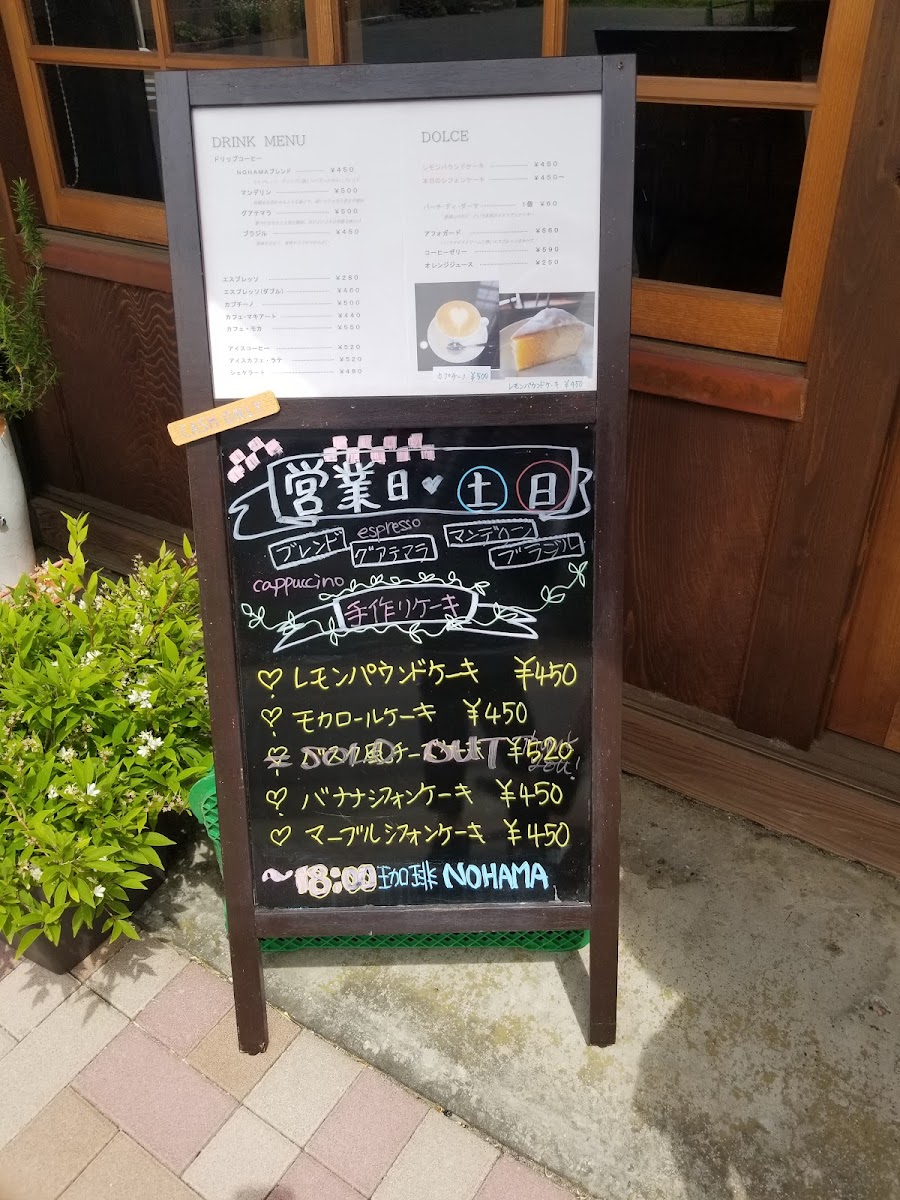 DRINK MENU
ドリップコーヒー
NOHAMAブレンド ¥450
マンデリン ¥500
グアテマラ ¥500
ブラジル ¥450
エスプレッソ ¥280
エスプレッソ(ダブル) ¥460
カプチーノ ¥500
カフェ・マキアート ¥440
カフェ・モカ ¥550
アイスコーヒー ¥520
アイスカフェ・ラテ ¥520
シェケラート ¥480
DOLCE
レモンパウンドケーキ ¥450
本日のシフォンケーキ ¥450ー
バーチ・ディ・ダーマ 1個 ¥60
アフォガード ¥550
コーヒーゼリー ¥590
オレンジジュース ¥250
カプチーノ ¥500
レモンパウンドケーキ ¥450
営業日♥土日
ブレンド
espresso
グアテマラ
マンデリン
ブラジル
cappuccino
手作りケーキ
♡レモンパウンドケーキ ¥450
♡モカロールケーキ ¥450
♡バスク風チーズケーキ ¥520
SOLD OUT
♡バナナシフォンケーキ ¥450
♡マーブルシフォンケーキ ¥450
〜18:00 珈琲 NOHAMA